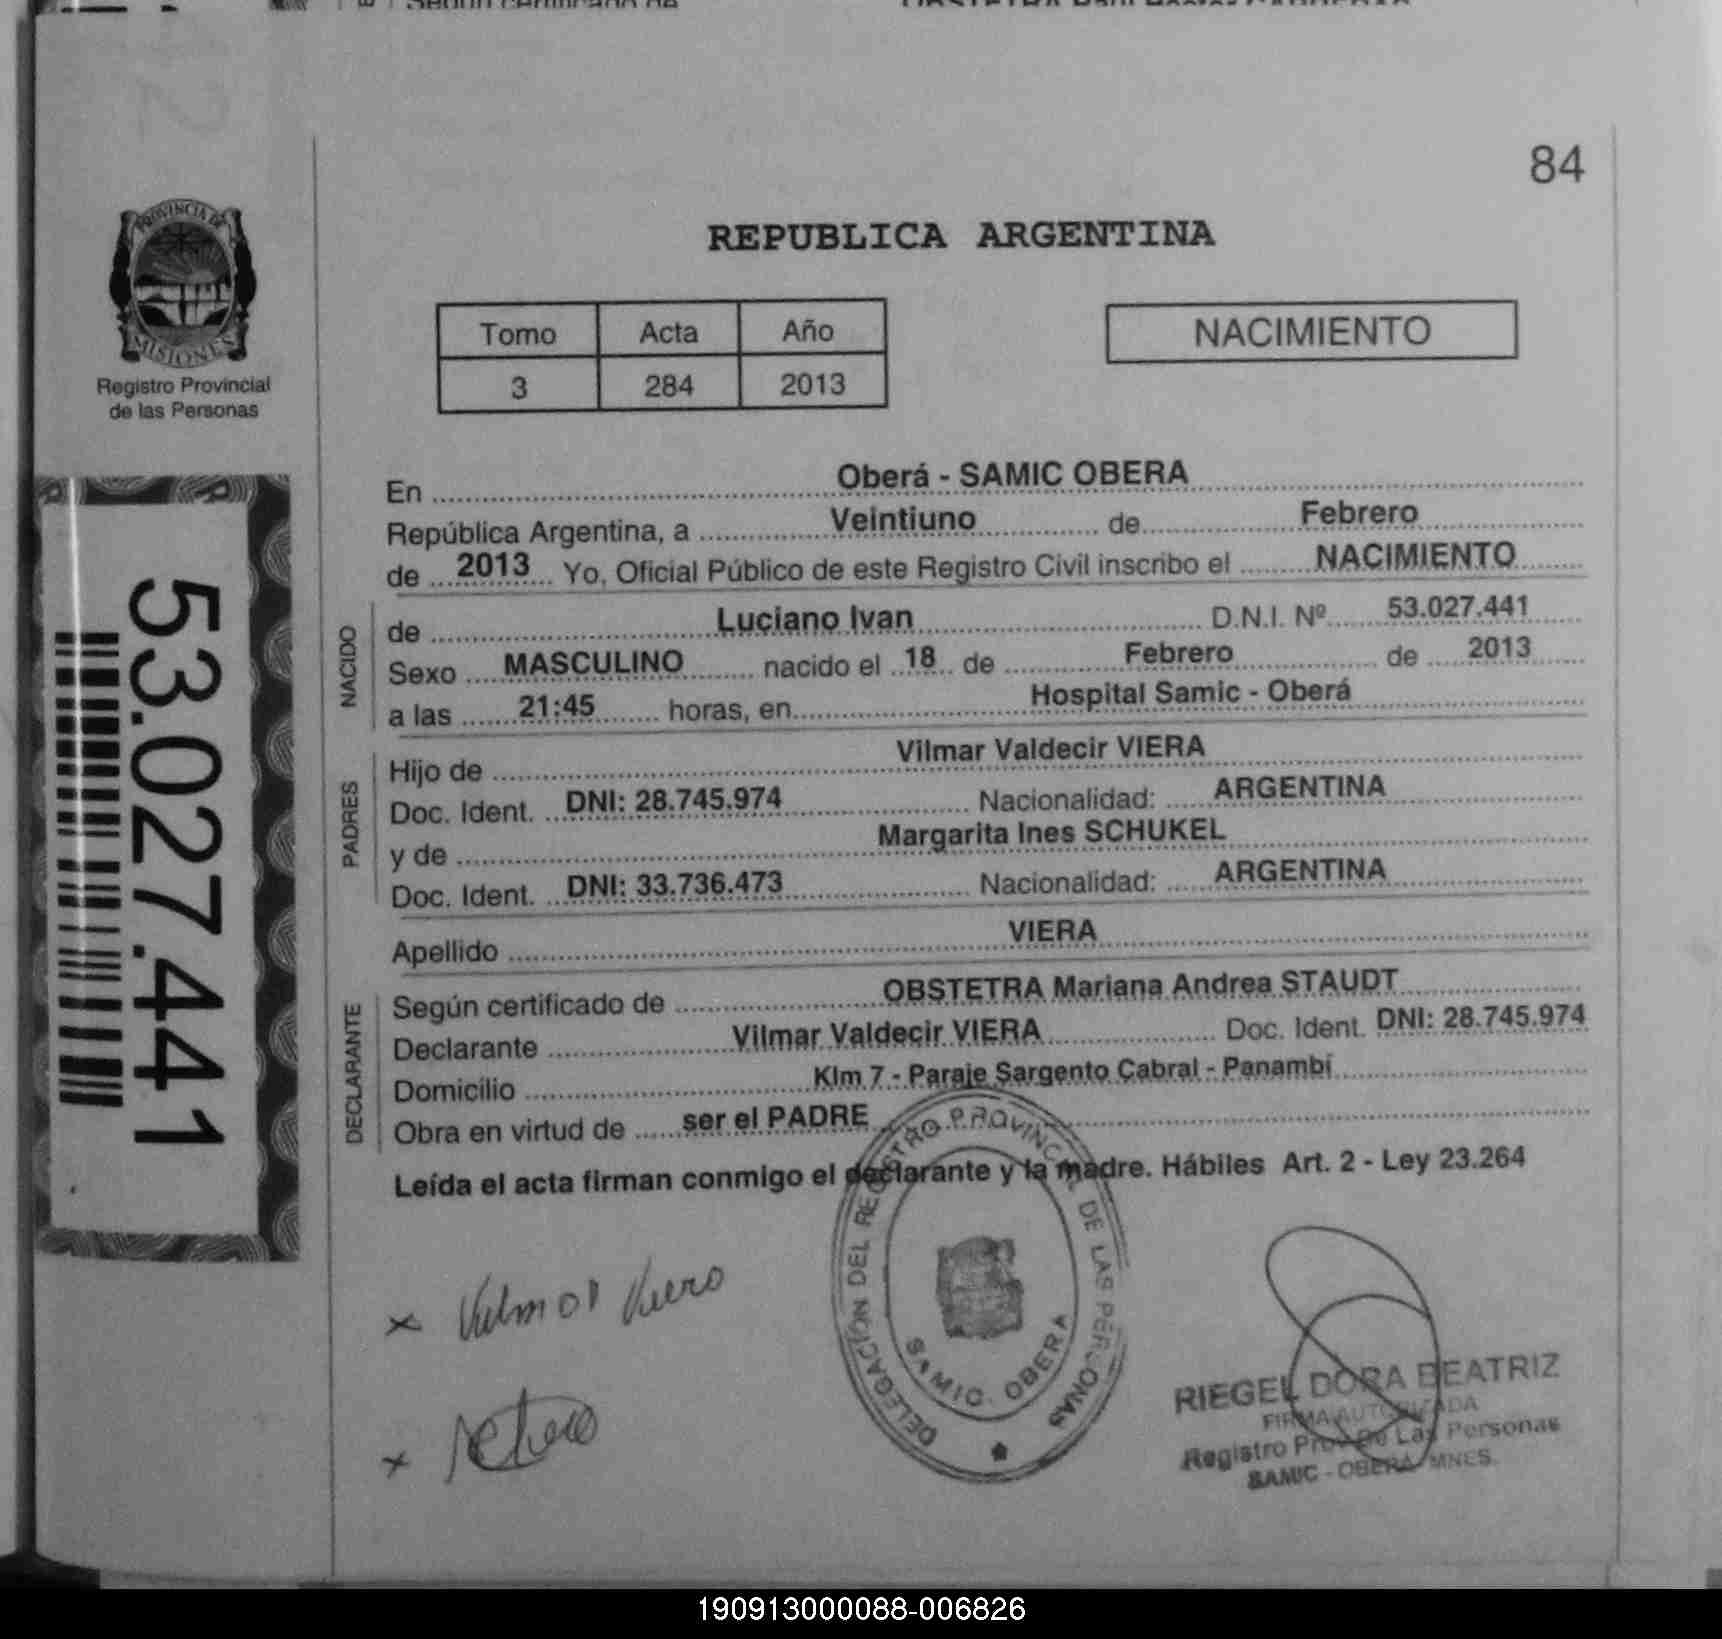 84
PROVINCIA DE
MISIONES
Registro Provincial
de las Personas
53.027.441
REPUBLICA ARGENTINA
Tomo Acta Año
3 284 2013
NACIMIENTO
En Oberá - SAMIC OBERA
República Argentina, a Veintiuno de Febrero
de 2013 Yo, Oficial Público de este Registro Civil inscribo el NACIMIENTO
NACIDO
de Luciano Ivan D.N.I. Nº 53.027.441
Sexo MASCULINO nacido el 18 de Febrero de 2013
a las 21:45 horas, en Hospital Samic - Oberá
PADRES
Hijo de Vilmar Valdecir VIERA
Doc. Ident. DNI: 28.745.974 Nacionalidad: ARGENTINA
y de Margarita Ines SCHUKEL
Doc. Ident. DNI: 33.736.473 Nacionalidad: ARGENTINA
Apellido VIERA
DECLARANTE
Según certificado de OBSTETRA Mariana Andrea STAUDT
Declarante Vilmar Valdecir VIERA Doc. Ident. DNI: 28.745.974
Domicilio Klm 7 - Paraje Sargento Cabral - Panambí
Obra en virtud de ser el PADRE
Leída el acta firman conmigo el declarante y la madre. Hábiles Art. 2 - Ley 23.264
DELEGACIÓN DEL REGISTRO PROVINCIAL DE LAS PERSONAS
SAMIC. OBERA
RIEGEL DORA BEATRIZ
FIRMA AUTORIZADA
Registro Prov. De Las Personas
SAMIC - OBERA MNES.
190913000088-006826